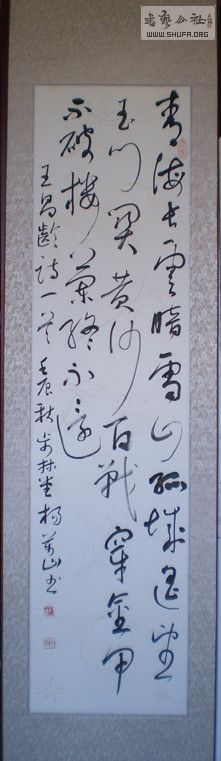 書藝公社
WWW.SHUFA.ORG
青海长云暗雪山孤城遥望
玉门関黄沙百战穿金甲
不破楼兰终不还
王昌龄诗一首 壬辰秋 杨万山书